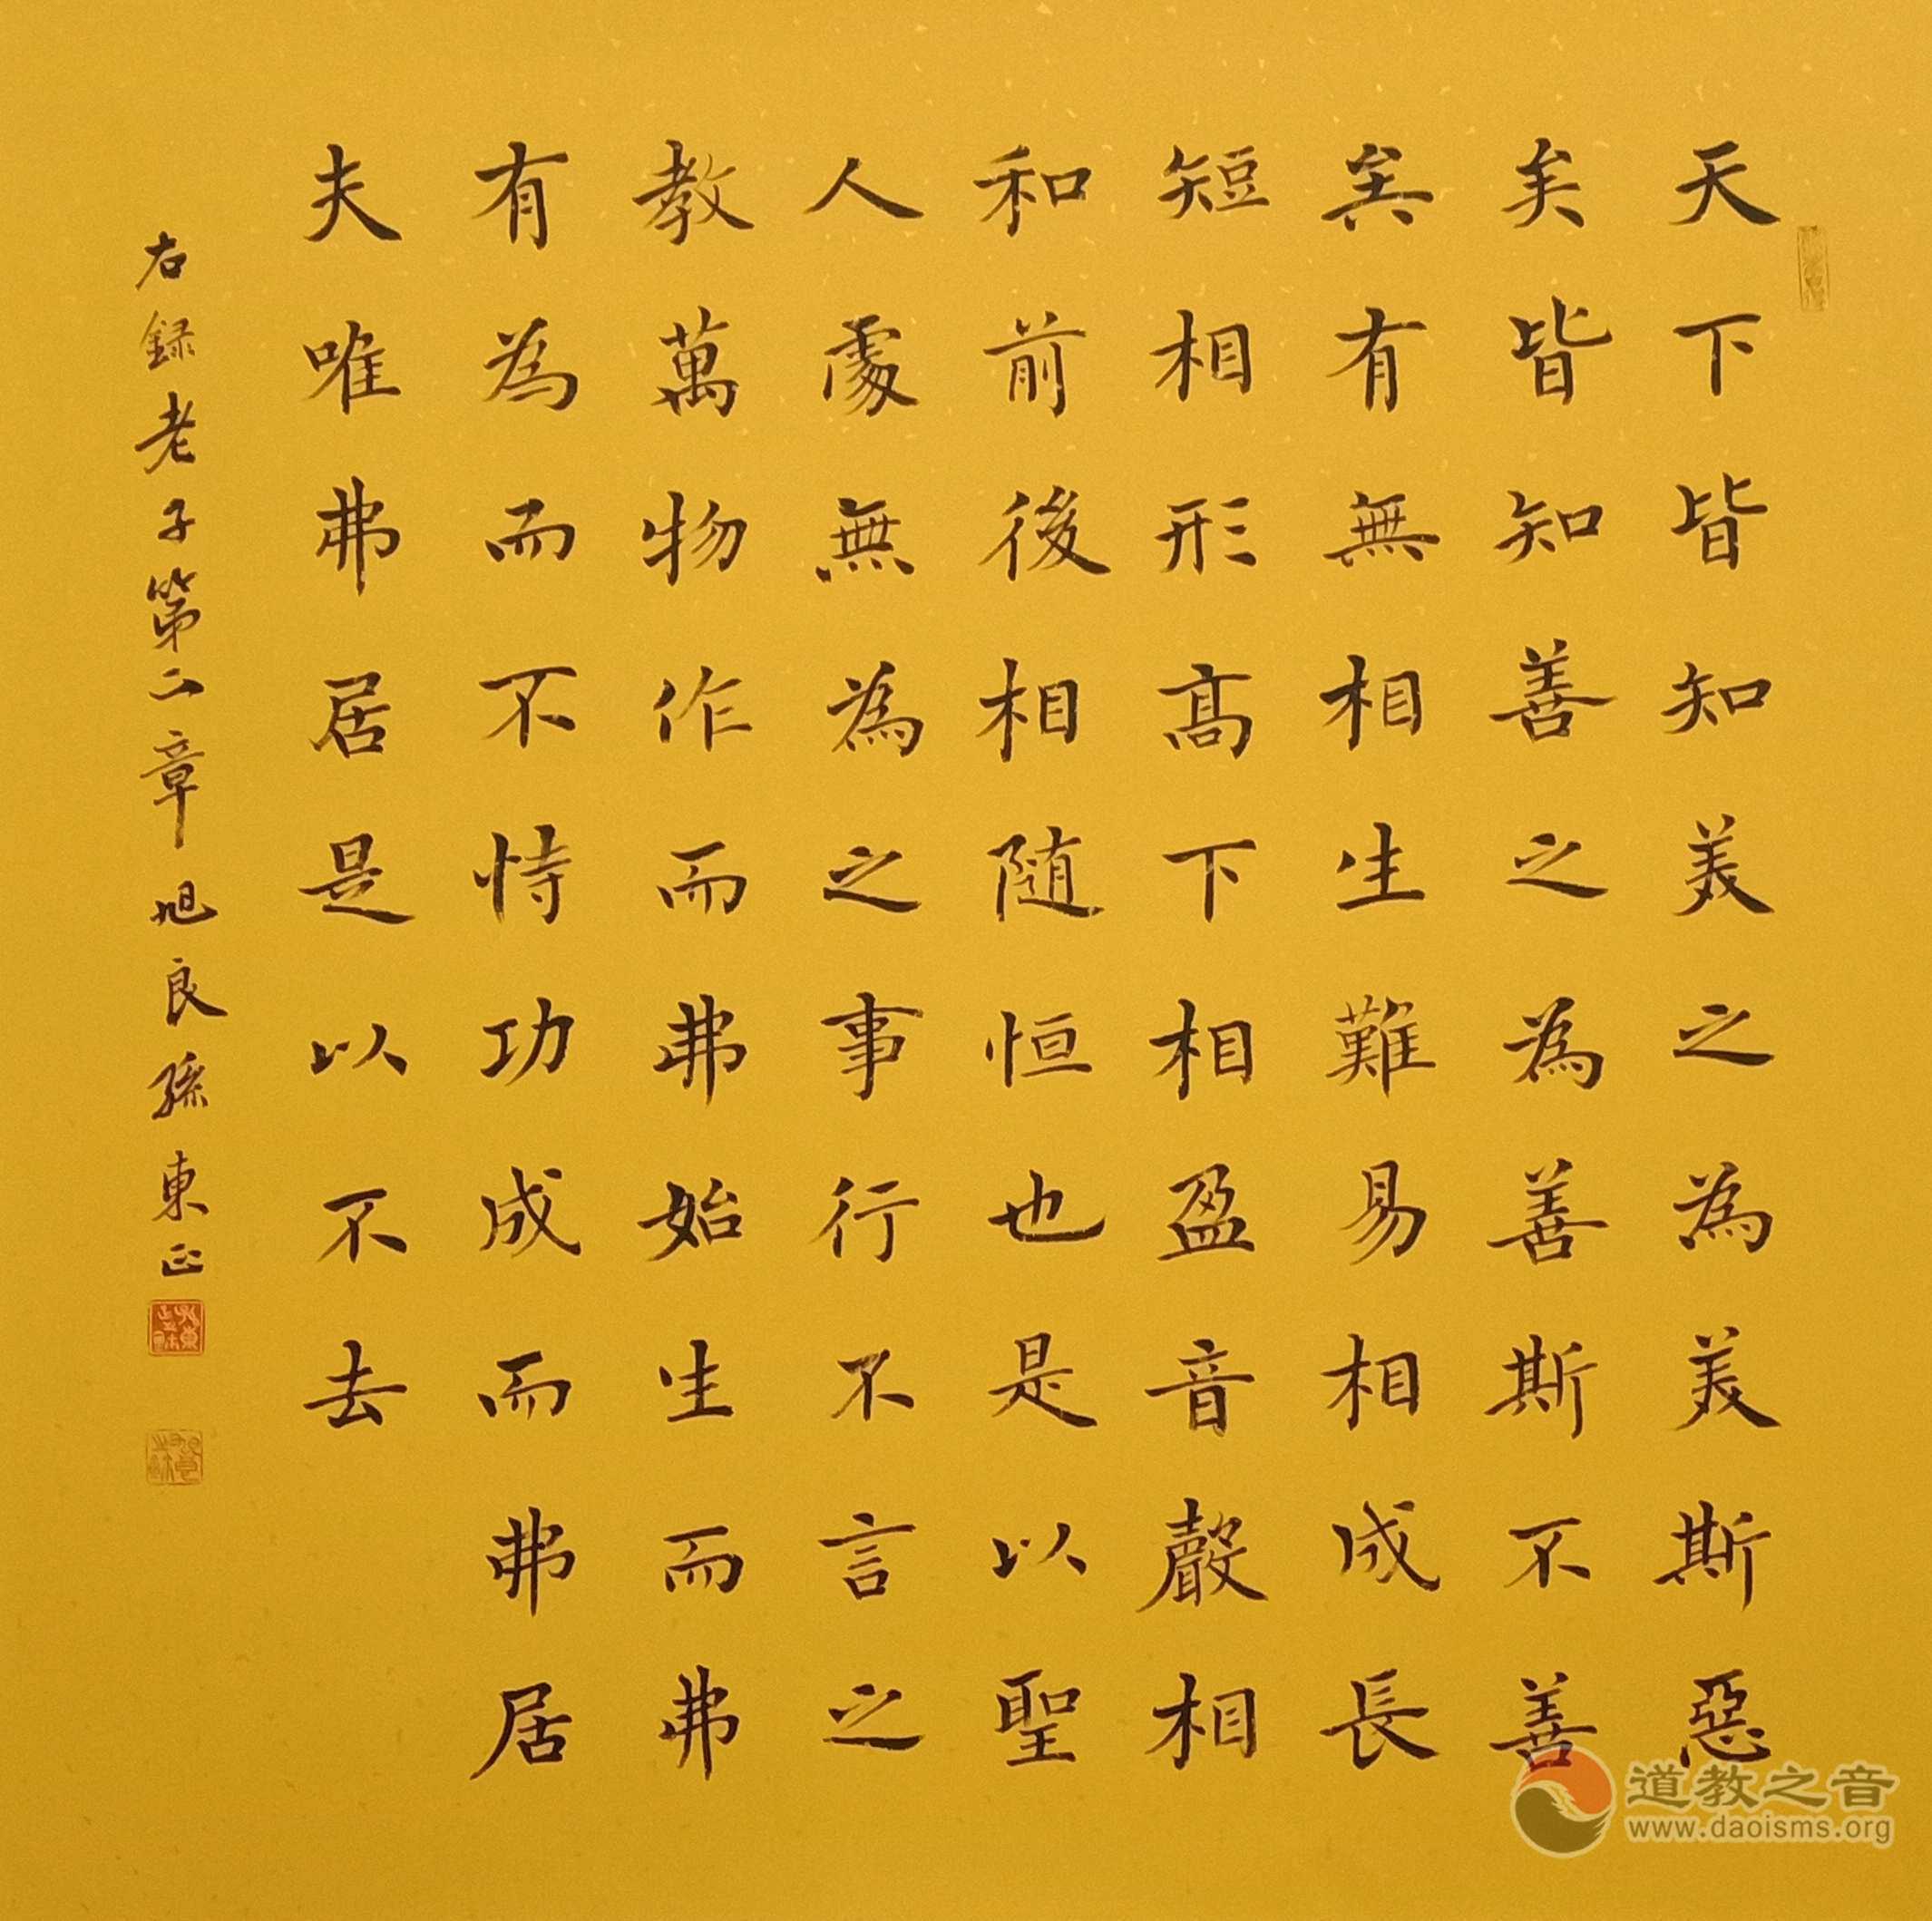 天下皆知美之為美斯惡
矣皆知善之為善斯不善
矣有無相生難易相成長
短相形髙下相盈音聲相
和前後相随恒也是以聖
人處無為之事行不言之
教萬物作而弗始生而弗
有為而不恃功成而弗居
夫唯弗居是以不去
右録老子第二章旭良孫東正
道教之音
www.daoisms.org